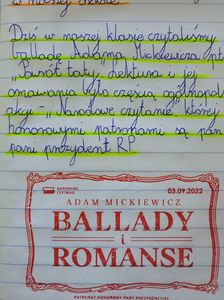 w naszej szkole.
Dziś w naszej klasie czytaliśmy
balladę Adama Mickiewicza pt.
„Powrót taty". Lektura i jej
omawianie było częścią ogólnopol
akcji - „Narodowe czytanie", której
honorowymi patronami są pan
pani prezydent RP
NARODOWE
CZYTANIE
03.09.2022
ADAM MICKIEWICZ
BALLADY
i
ROMANSE
PATRONAT HONOROWY PARY PREZYDENCKIEJ